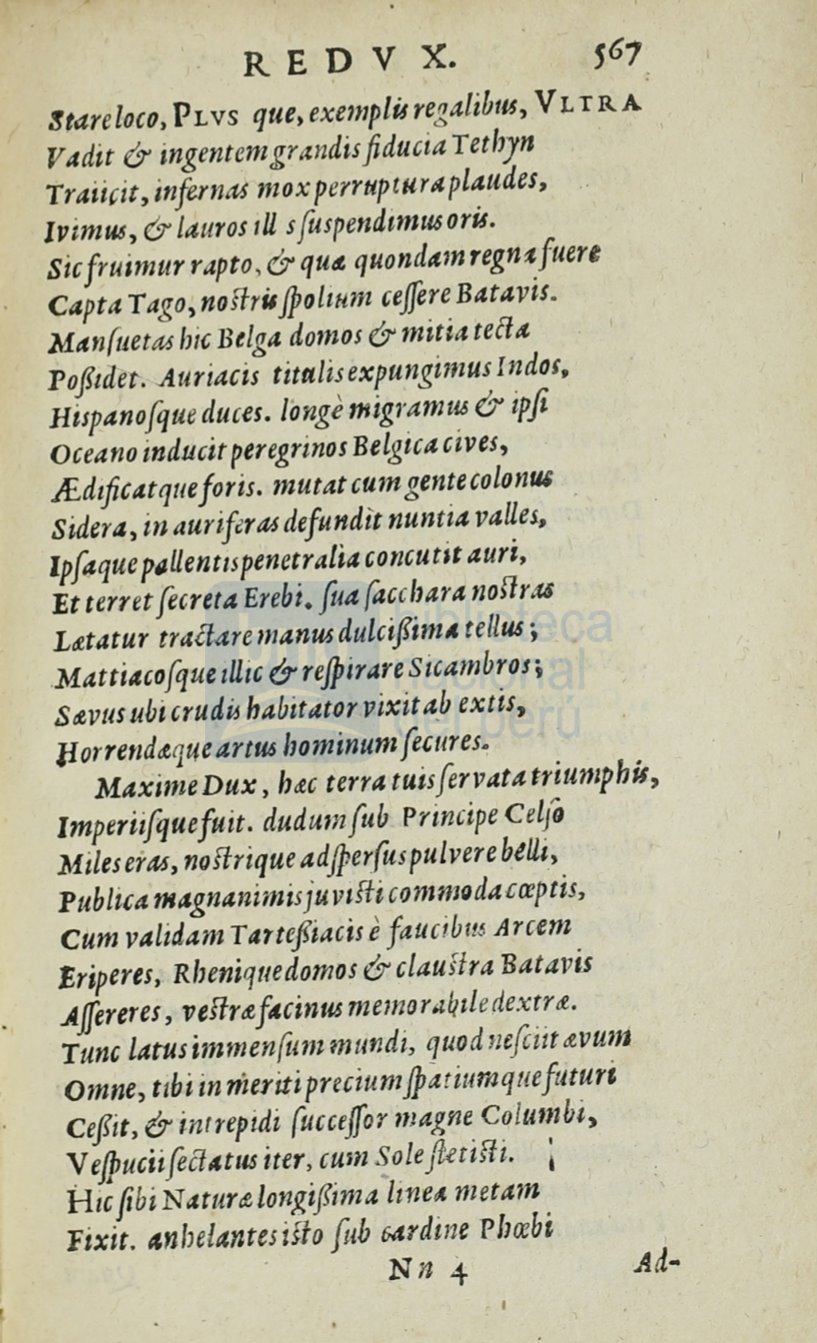 REDVX. 567
Stare loco, PLVS que, exemplis regalibus, VLTRA
Vadit & ingentem grandis fiducia Tethyn
Traiicit, infernas mox perruptura plaudes,
Ivimus, & lauros ill s suspendimus oris.
Sic fruimur rapto, & quæ quondam regna fuere
Capta Tago, nostris spolium cessere Batavis.
Mansuetas hic Belga domos & mitia tecta
Possidet. Auriacis titulis expungimus Indos,
Hispanosque duces. longè migramus & ipsi
Oceano inducit peregrinos Belgica cives,
Ædificatque foris. mutat cum gente colonus
Sidera, in auriferas defundit nuntia valles,
Ipsaque pallentis penetralia concutit auri,
Et terret secreta Erebi. sua sacchara nostras
Lætatur tractare manus dulcissima tellus;
Mattiacosque illic & respirare Sicambros;
Sævus ubi crudis habitator vixit ab extis,
Horrendæque artus hominum secures.
Maxime Dux, hæc terra tuis servata triumphis,
Imperiisque fuit. dudum sub Principe Celso
Miles eras, nostrique adspersus pulvere belli,
Publica magnanimis juvisti commoda cœptis,
Cum validam Tartessiacis è faucibus Arcem
Eriperes, Rhenique domos & claustra Batavis
Assereres, vestræ facinus memorabile dextræ.
Tunc latus immensum mundi, quod nesciit ævum
Omne, tibi in meriti precium spatiumque futuri
Cessit, & intrepidi successor magne Columbi,
Vespucii sectatus iter, cum Sole stetisti.
Hic sibi Naturæ longissima linea metam
Fixit. anhelantes isto sub cardine Phœbi
Nn 4 Ad-